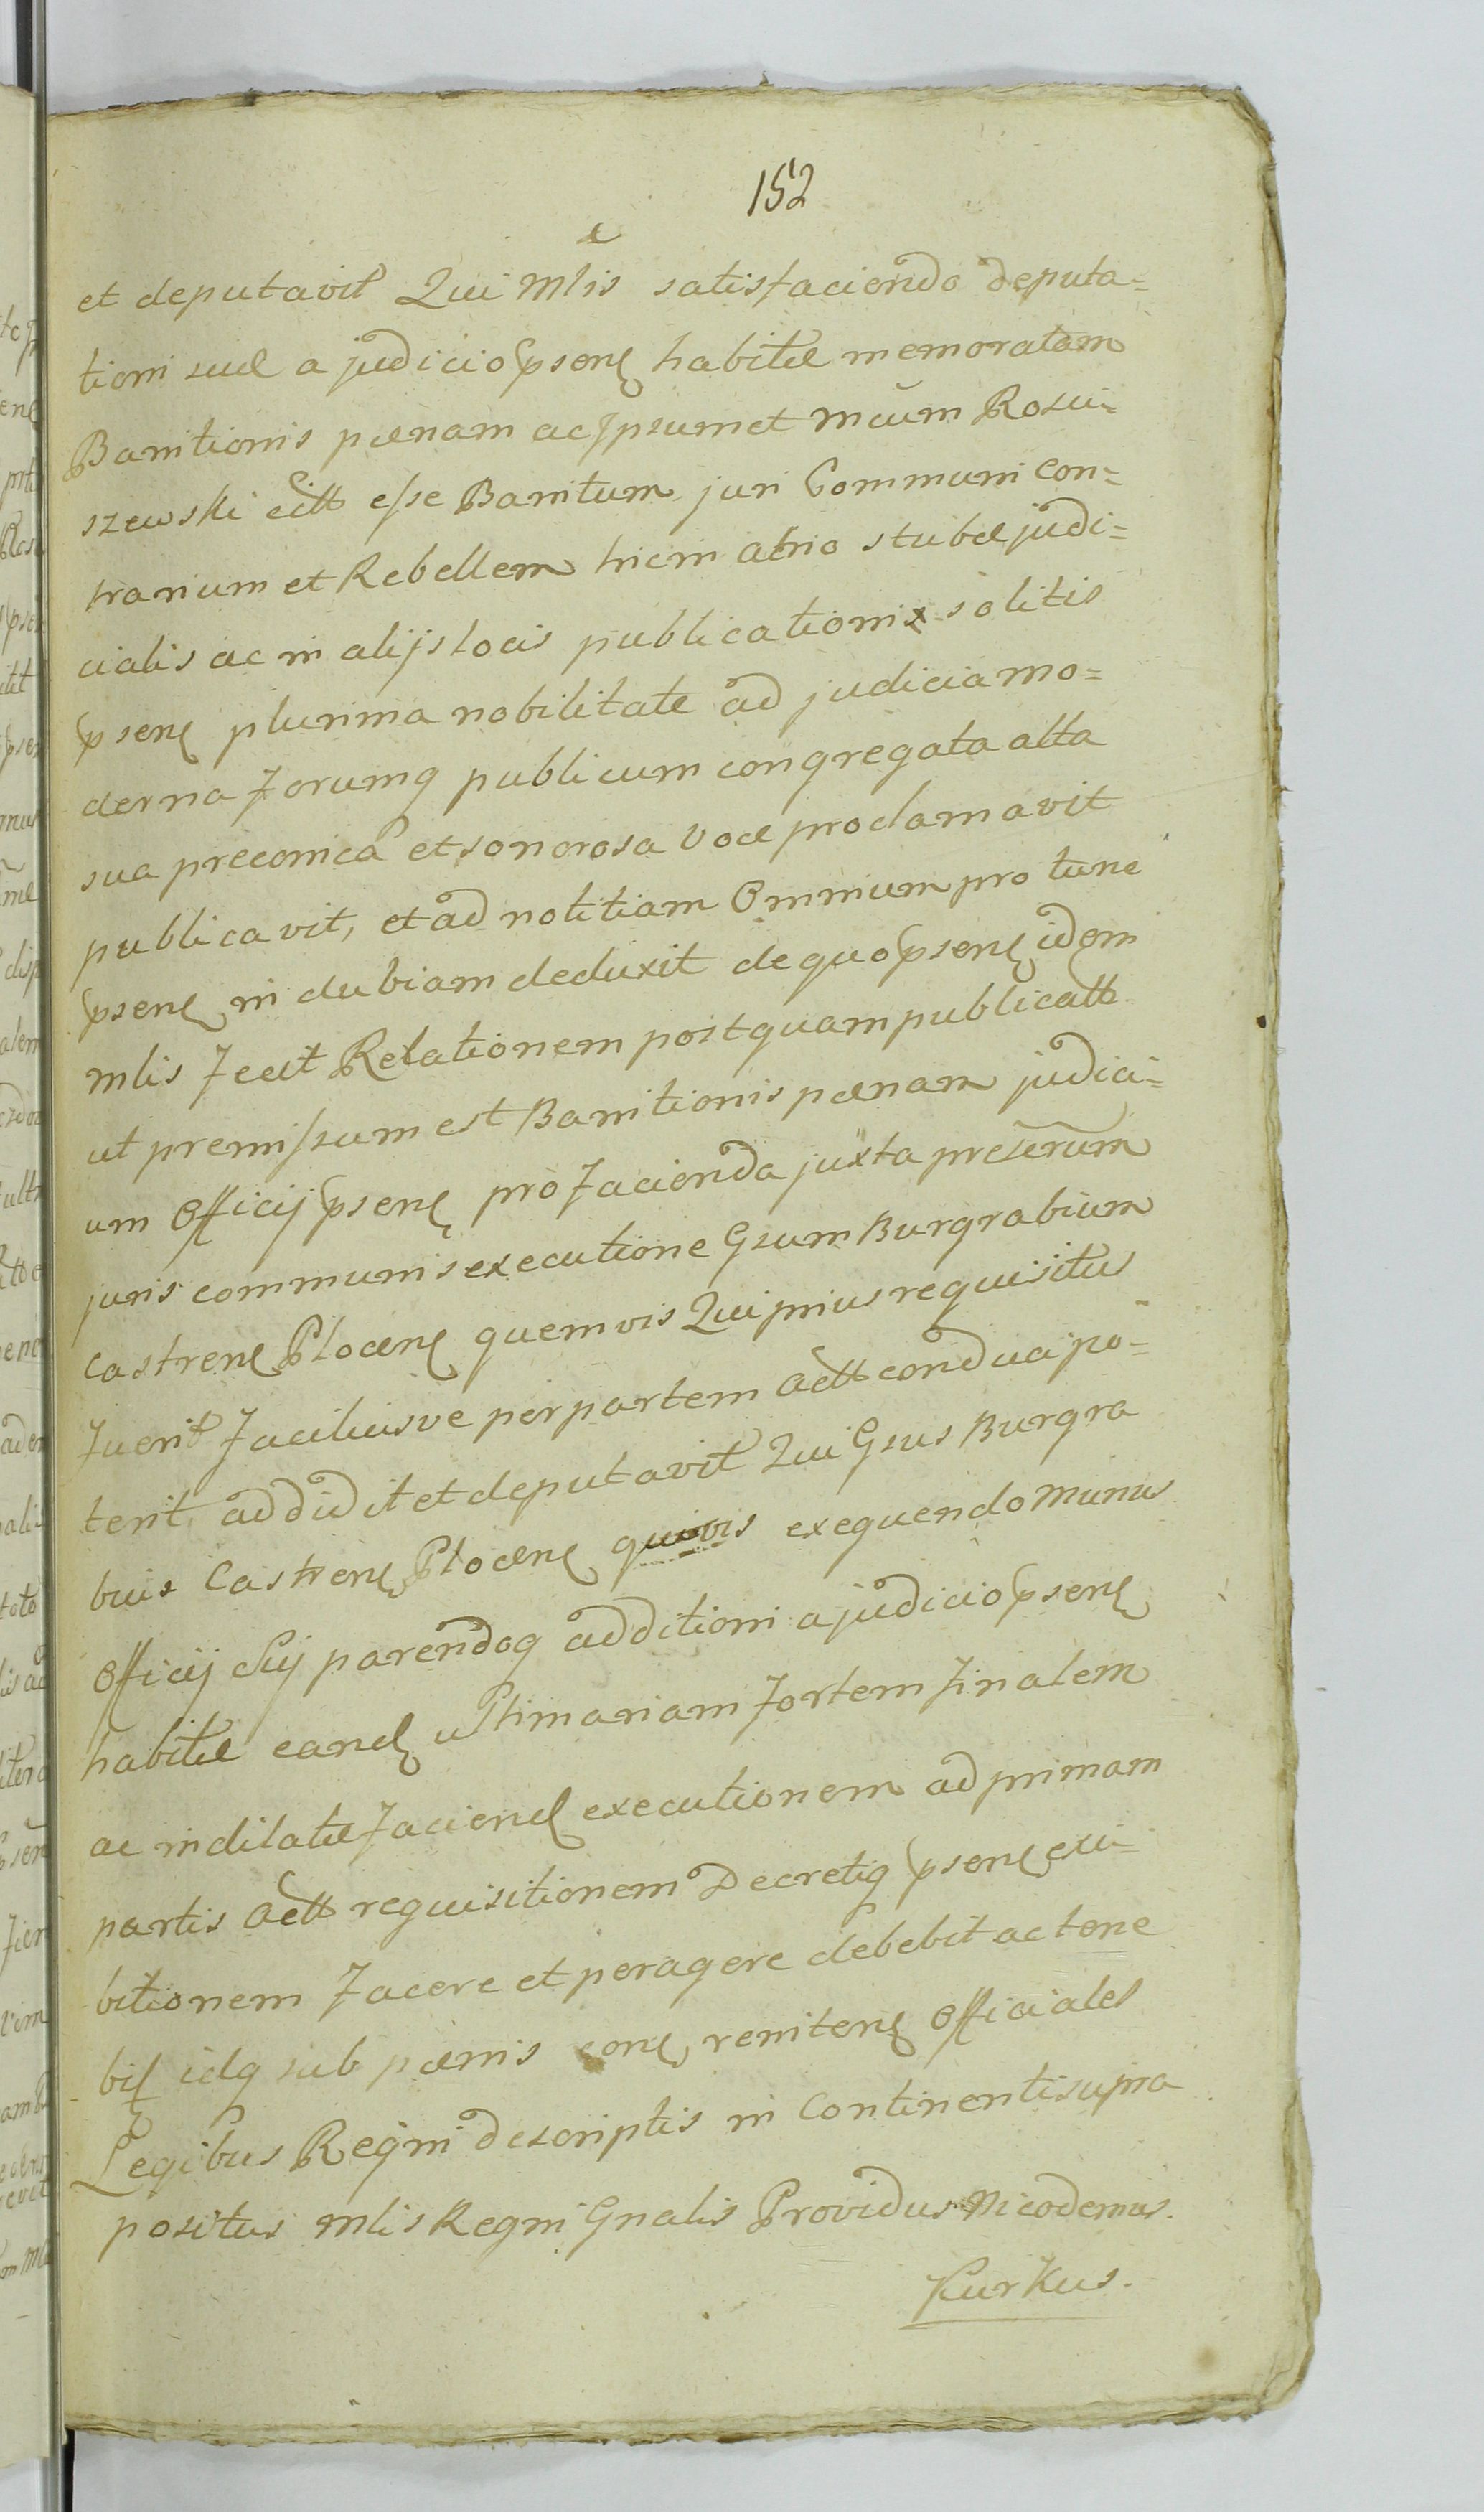 152
et deputavit Qui Mlis satisfaciendo deputa=
tioni suæ a judicio psenę habitæ memoratam
Banitionis pænam ac Ipsumet Mcum Rosci=
szewski citt esse Banitum juri Communi Con=
trarium et Rebellem hic in atrio stubæ judi=
cialis ac in alijs locis publicationis solitis
psenę plurima nobilitate ad judicia mo=
derna Forumq publicum congregata alta
sua preconica et sonorosa Voce proclamavit
publicavit, et ad notitiam Omnium pro tunc
psenę in dubiam deduxit de quo psenę idem
Mlis Fecit Relationem post quam publicatt
ut premissum est Banitionis pænam judici=
um Officij psenę pro Facienda juxta prescrum
juris communis executione Gsum Burgrabium
Castrenę Plocenę quemvis Qui prius requisitus
Fuerit Faciliusve per partem Actt conduci po=
terit, addidit et deputavit Qui Gsus Burgra
bius Castrenę Plocenę quivis exequendo Munus
Officij Sui parendoq additioni a judicio psenę
habitæ eandę ultimariam Fortem Finalem
ac indilatæ Faciendę executionem ad primam
partis Actt requisitionem Decretiq psenę exi=
bitionem Facere et peragere debebit ac tene
bię idq sub pænis conę renitenę Officiales
Legibus Regni descriptis in Continenti supra
positus Mlis Regni Gnalis Providus Nicodemus.
Kurkus.